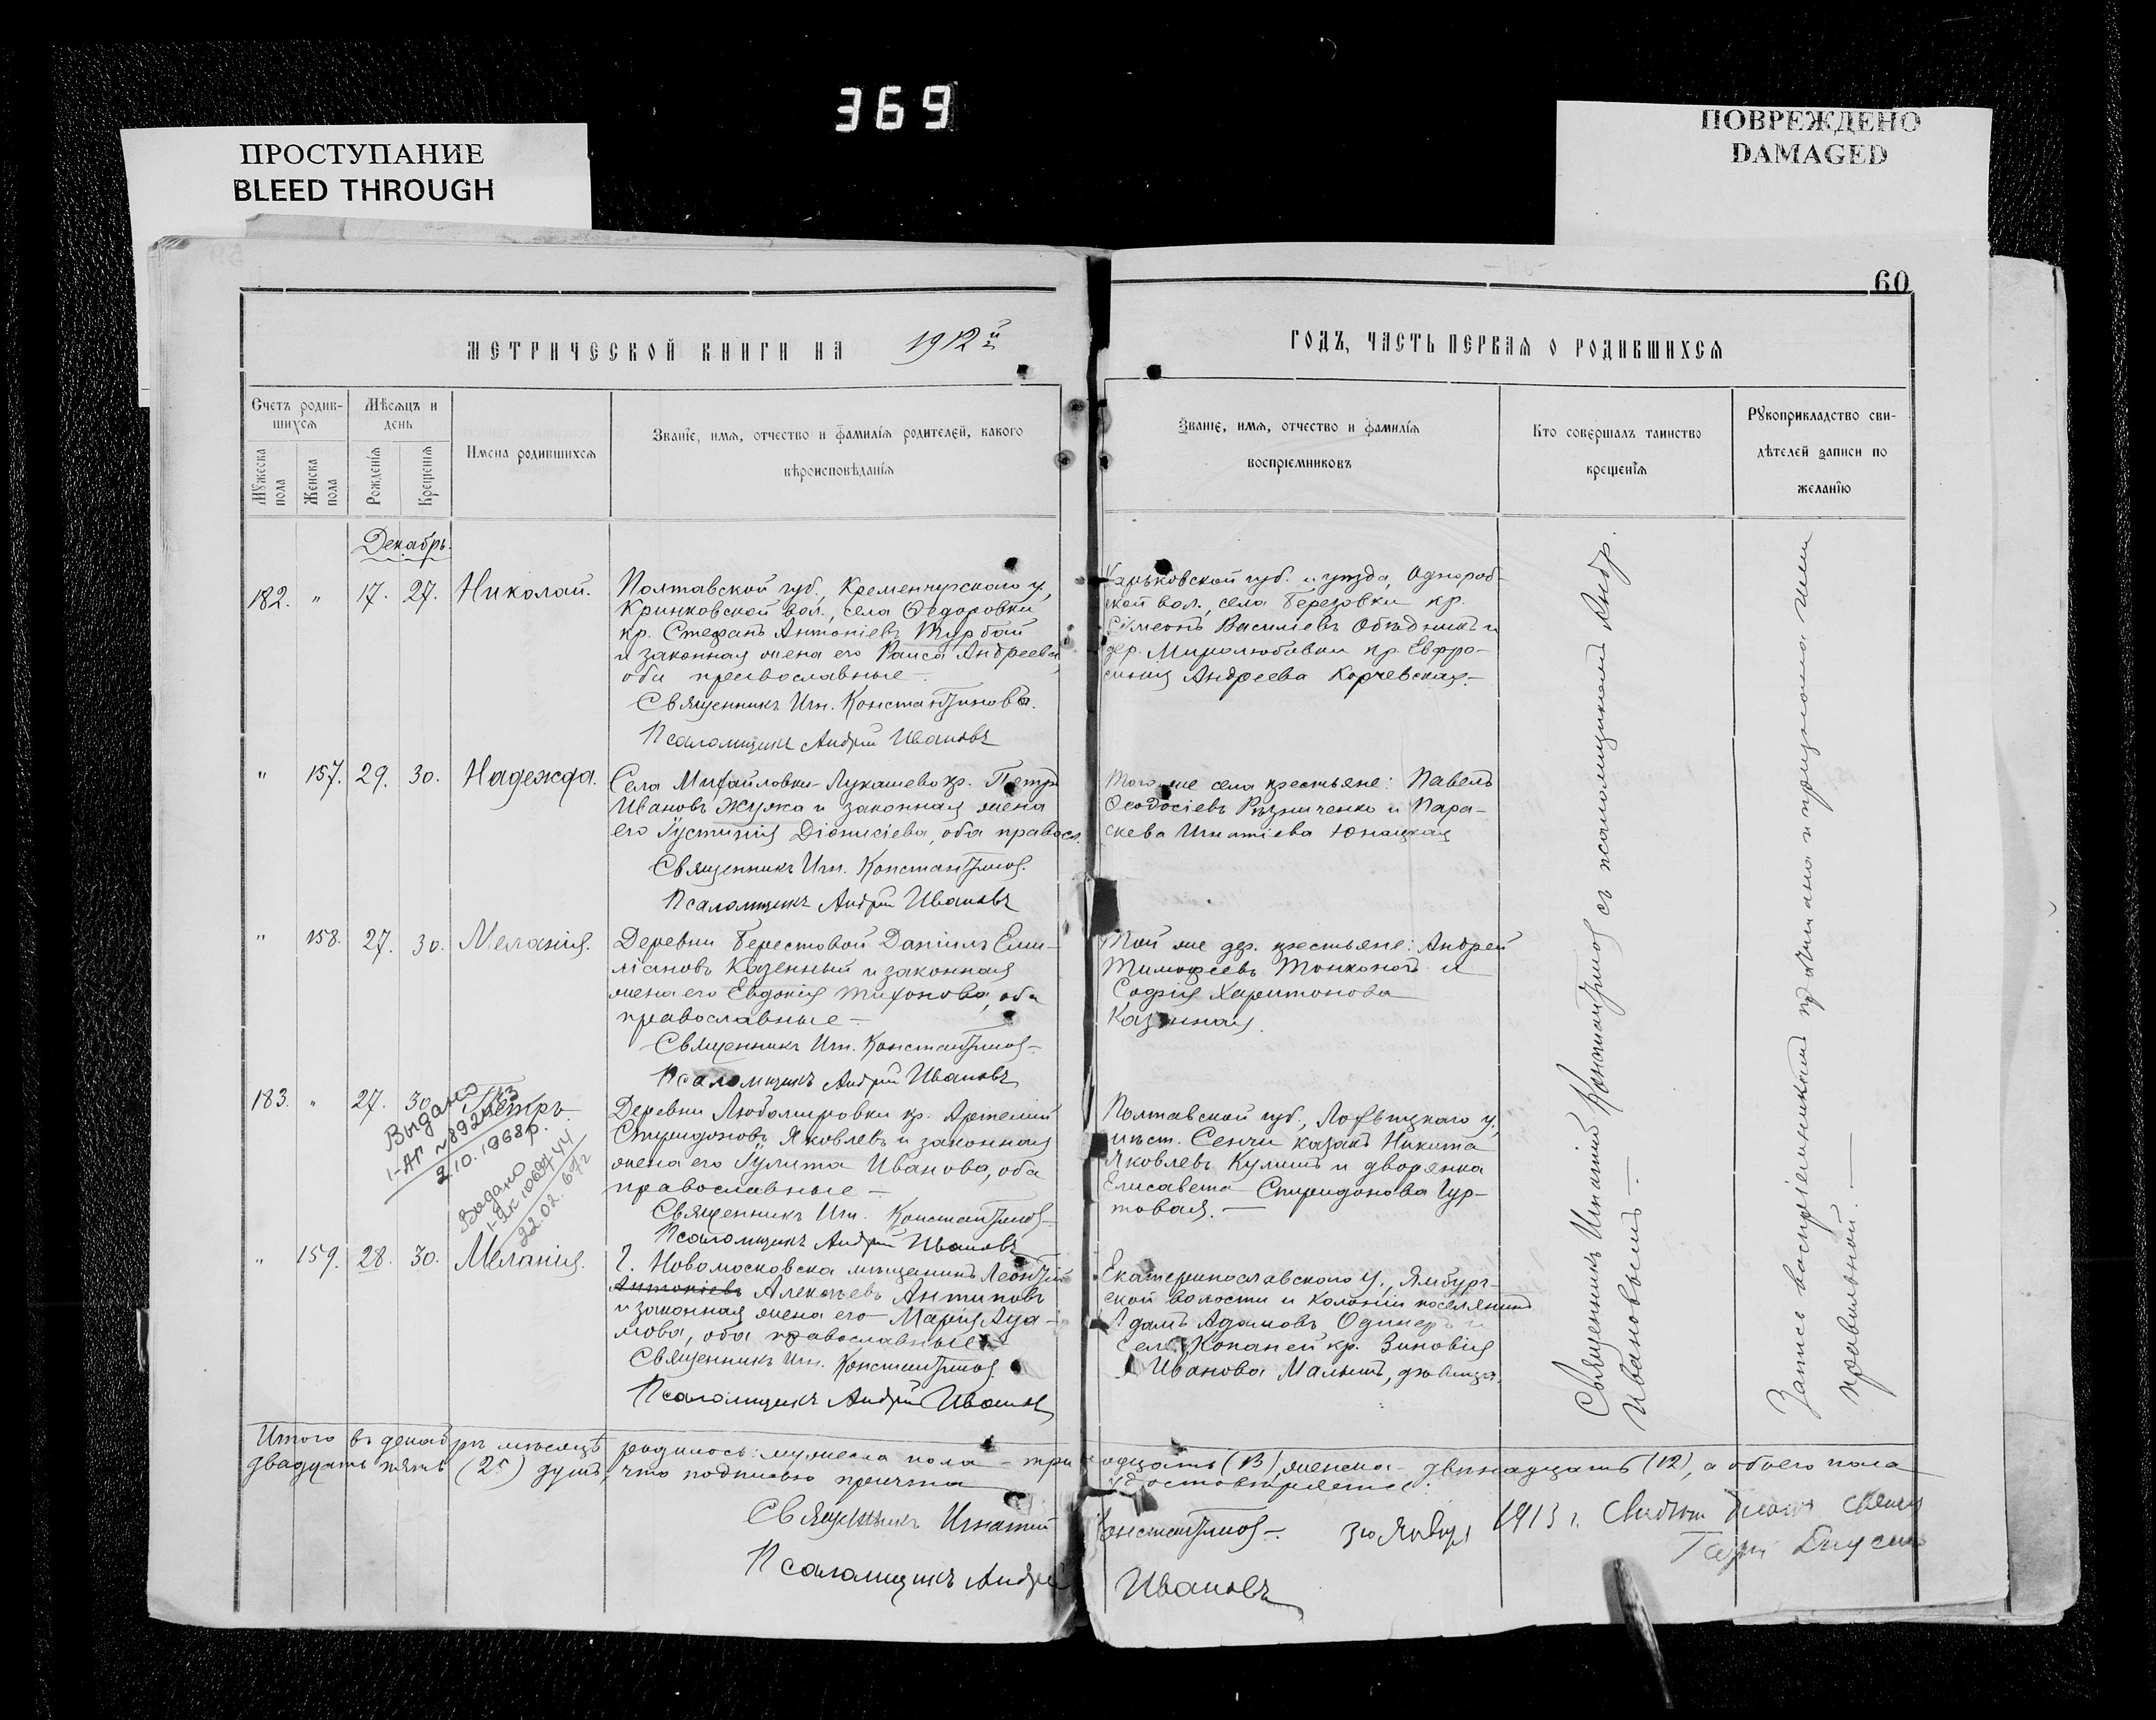 369
ПРОСТУПАНИЕ
BLEED THROUGH
ПОВРЕЖДЕНО
DAMAGED
60
МЕТРИЧЕСКОЙ КНИГИ НА 1912й
ГОДЪ, ЧАСТЬ ПЕРВАЯ О РОДИВШИХСЯ
Счетъ родив-
шихся
Мужеска пола
Женска пола
Мѣсяцъ и
день
Рожденія
Крещенія
Имена родившихся
Званіе, имя, отчество и фамилія родителей, какого
вѣроисповѣданія
Званіе, имя, отчество и фамилія
воспріемниковъ
Кто совершалъ таинство
крещенія
Рукоприкладство сви-
дѣтелей записи по
желанію
Декабрь.
182. " 17. 27. Николай.
Полтавской губ., Кременчугскаго у.,
Кринковской вол., села Ѳедоровки
кр. Стефанъ Антоніевъ Турбай
и законная жена его Раиса Андреева,
оба православные.
Священникъ Игн. Константиновъ.
Псаломщикъ Андрей Ивановъ
Харьковской губ. и уѣзда, Однороб-
ской вол., села Березовки кр.
Симеонъ Васильевъ Объѣдникъ и
дер. Миролюбовки кр. Евфро-
синія Андреева Корчевская.
" 157. 29. 30. Надежда.
Села Михайловки-Лукашево кр. Петръ
Ивановъ Жужа и законная жена
его Іустинія Діонисіева, оба правосл.
Священникъ Игн. Константиновъ.
Псаломщикъ Андрей Ивановъ
Того же села крестьяне: Павелъ
Ѳеодосіевъ Рѣзниченко и Пара-
скева Игнатіева Юнацкая
" 158. 27. 30. Меланія.
Деревни Берестовой Даніилъ Еми-
ліановъ Казенный и законная
жена его Евдокія Тихонова, оба
православные
Священникъ Игн. Константиновъ
Псаломщикъ Андрей Ивановъ
Той же дер. крестьяне: Андрей
Тимофеевъ Тонконогъ и
Софія Харитонова
Казенная.
183. " 27. 30. Петръ
Выдано
2.10.1968р.
Выдано
22.02.
Деревни Любомировки кр. Артемій
Спиридоновъ Яковлевъ и законная
жена его Іулита Иванова, оба
православные
Священникъ Игн. Константиновъ
Псаломщикъ Андрей Ивановъ
Полтавской губ., Лохвицкаго у.,
мѣст. Сенчи казакъ Никита
Яковлевъ Кулишъ и дворянка
Елисавета Спиридонова Гур-
товая.
" 159. 28. 30. Меланія.
Г. Новомосковска мѣщанинъ Леонтій
Антоніевъ Алексѣевъ Антиповъ
и законная жена его Марія Ада-
мова, оба православные
Священникъ Игн. Константиновъ
Псаломщикъ Андрей Ивановъ
Екатеринославскаго у., Ямбург-
ской волости и колоніи поселянинъ
Адамъ Адамовъ и
села Копаней кр. Зиновія
Иванова Малышъ, дѣвица.
Священникъ Игнатій Константиновъ съ псаломщикомъ Андр.
Ивановымъ
Запись воспріемникамъ прочитана и признана ими
правильной.
Итого въ декабрѣ мѣсяцѣ родилось: мужеска пола - тринадцать (13), женска - двѣнадцать (12), а обоего пола
двадцать пять (25) душъ, что подписью причта удостовѣряется.
Священникъ Игнатій Константиновъ 3го Января 1913 г.
Псаломщикъ Андрей Ивановъ